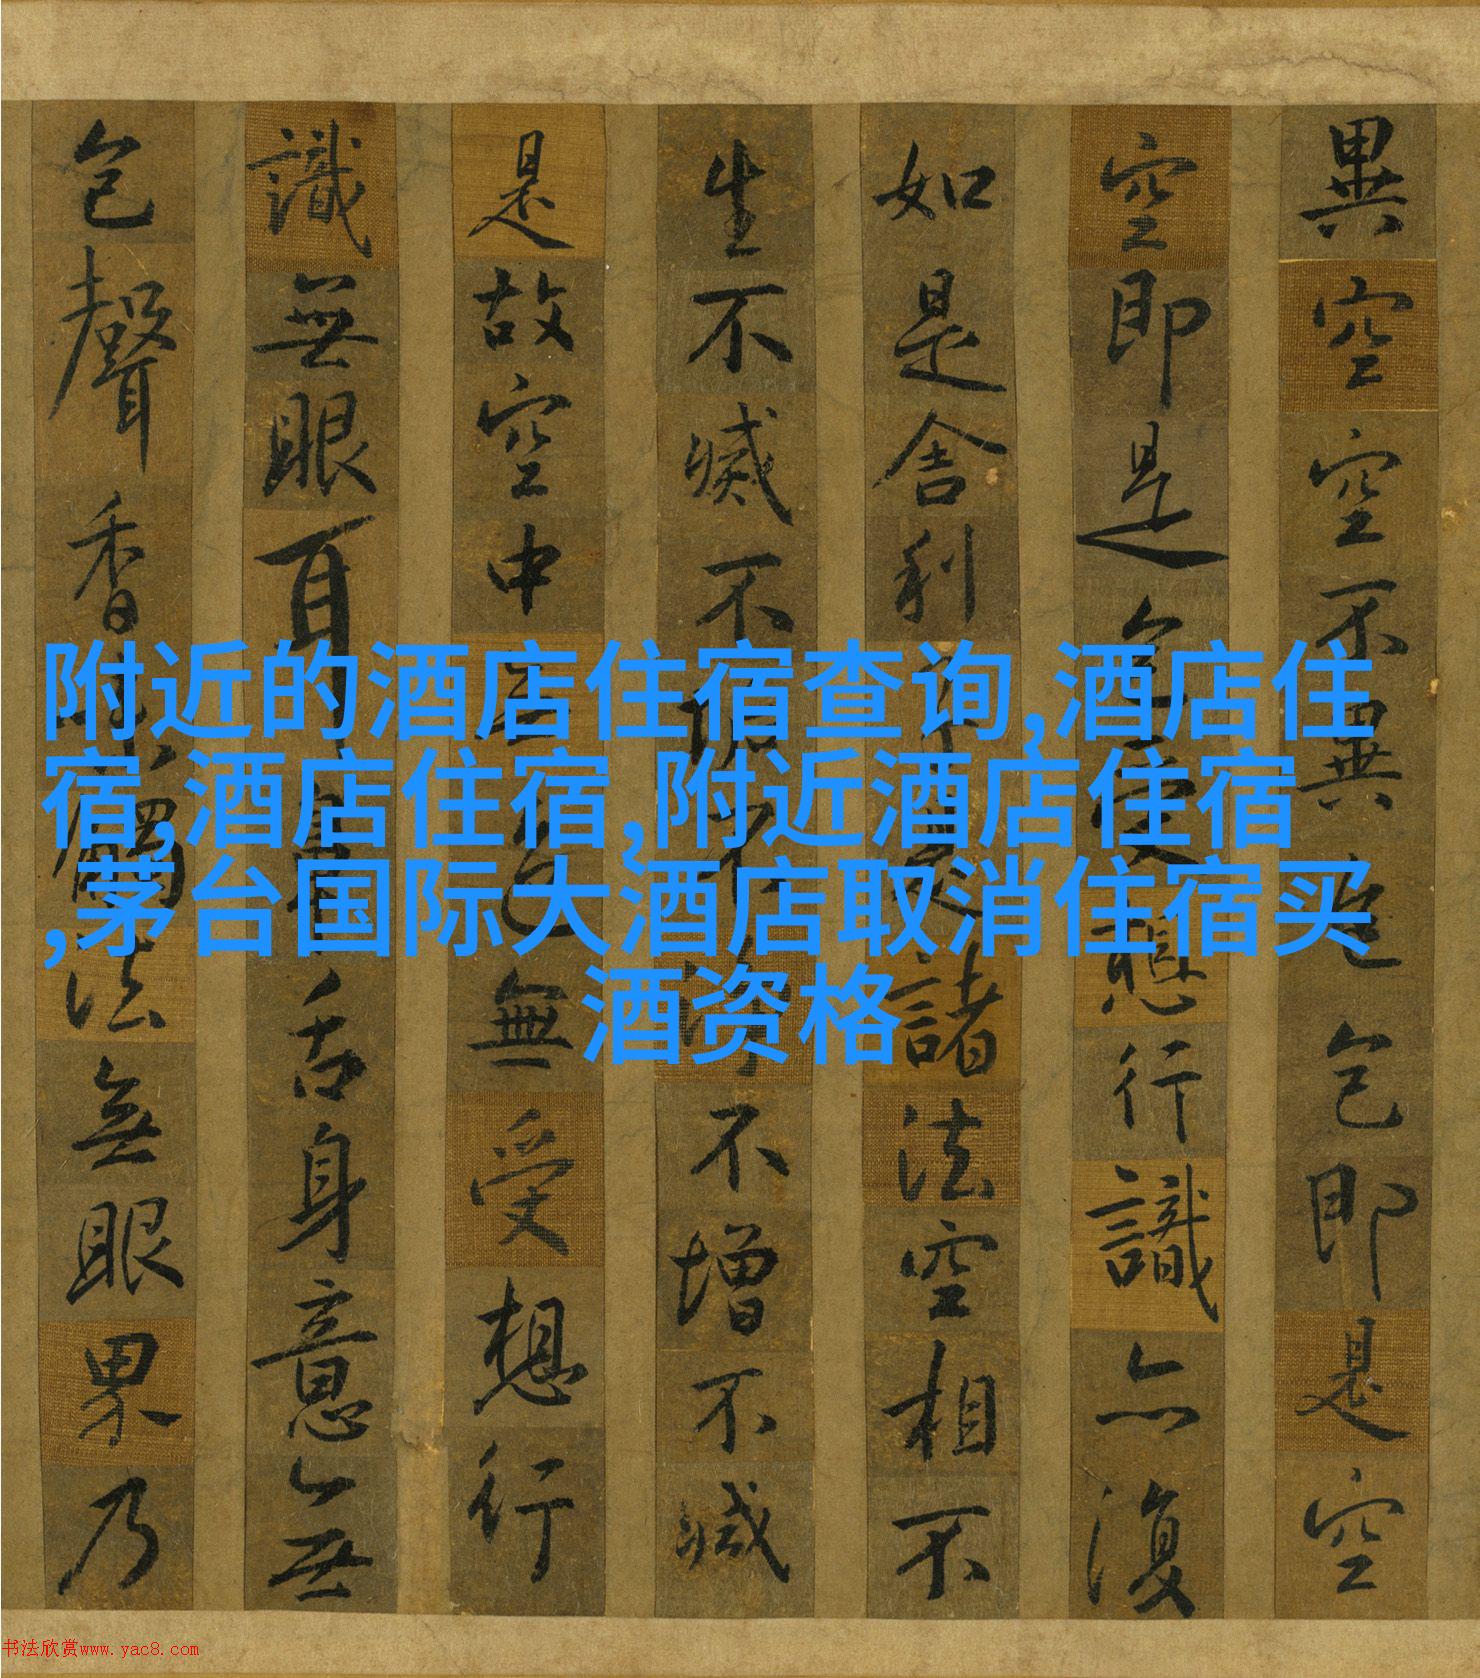 附近的酒店住宿查询,酒店住
宿,酒店住宿,附近酒店住宿
,茅台国际大酒店取消住宿买
酒资格
異空空不異色色即是空
空即是色受想行識亦復
如是舍利子是諸法空相不
生不滅不垢不淨不增不減
是故空中無色無受想行
識無眼耳鼻舌身意無
色聲香味觸法無眼界乃
书法欣赏www.yac8.com